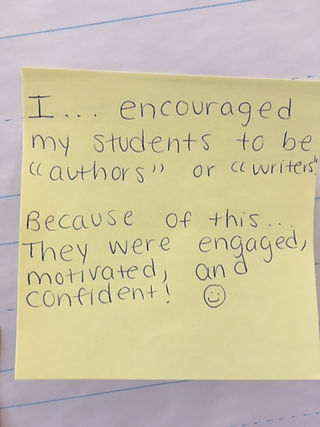 I... encouraged
my students to be
"authors" or "writers".
Because of this...
They were engaged,
motivated, and
confident! ☺